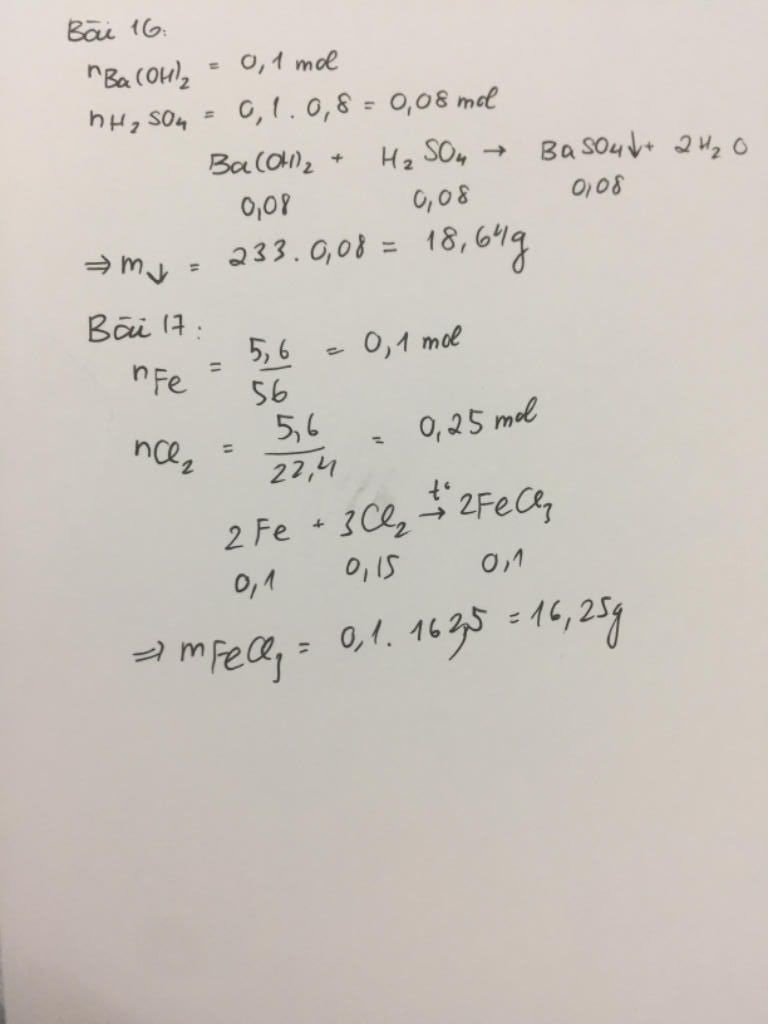 Bài 16:
nBa(OH)₂ = 0,1 mol
nH₂SO₄ = 0,1 . 0,8 = 0,08 mol
Ba(OH)₂ + H₂SO₄ → BaSO₄↓ + 2H₂O
0,08 0,08 0,08
⇒ m↓ = 233 . 0,08 = 18,64g
Bài 17:
nFe = 5,6/56 = 0,1 mol
nCl₂ = 5,6/22,4 = 0,25 mol
2Fe + 3Cl₂ →(t°) 2FeCl₃
0,1 0,15 0,1
⇒ mFeCl₃ = 0,1 . 162,5 = 16,25g